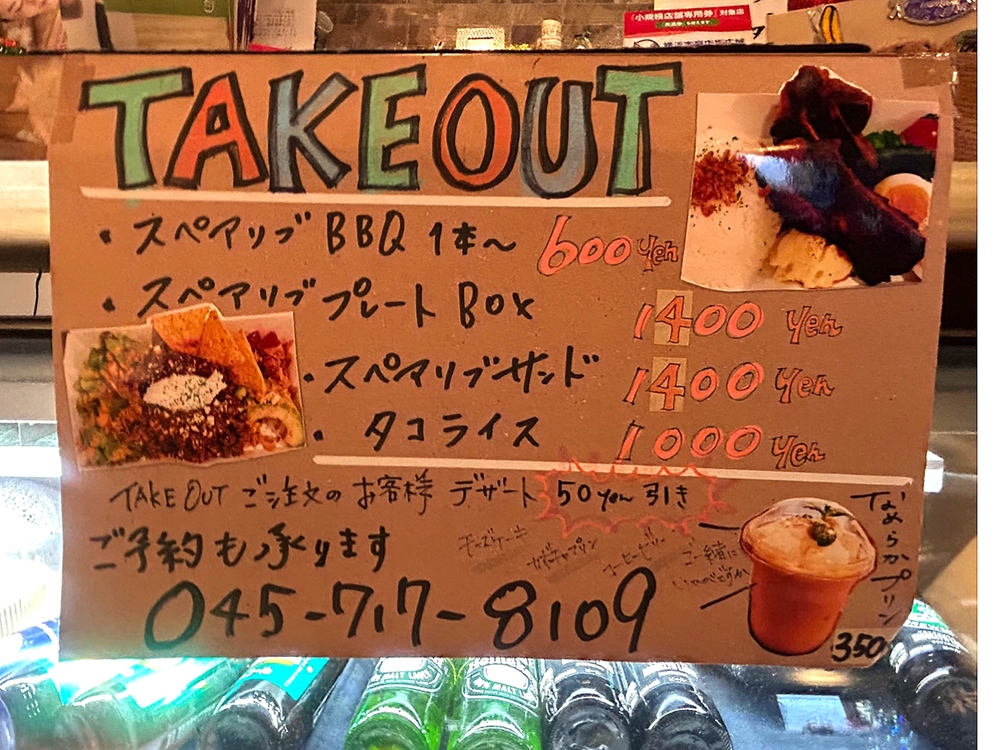 「小規模店舗専用券」対象店
TAKEOUT
・スペアリブ BBQ 1本〜 600yen
・スペアリブ プレート Box 1400 yen
・スペアリブサンド 1400 yen
・タコライス 1000 yen
TAKE OUT ご注文の お客様 デザート 50yen 引き
ご予約も承ります
チーズケーキ
コーヒーゼリー
ご一緒に
いかがですか
なめらかプリン
350
045-717-8109
MALT